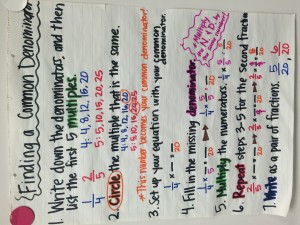 Finding a Common Denominator
1. Write down the denominators and then
list the first 5 multiples.
1/4 2/5
4: 4, 8, 12, 16, 20
5: 5, 10, 15, 20, 25
2. Circle the multiple that is the same.
4: 4, 8, 12, 16, 20
5: 5, 10, 15, 20, 25
*This number becomes your common denominator!
3. Set up your equation with your common
denominator.
1/4 × — = —/20
4. Fill in the missing denominator.
1/4 × —/5 = —/20
5. Multiply the numerators.
1/4 × 5/5 = 5/20
6. Repeat steps 3-5 for the second fraction
7. Write as a pair of fractions. 5/20, 8/20